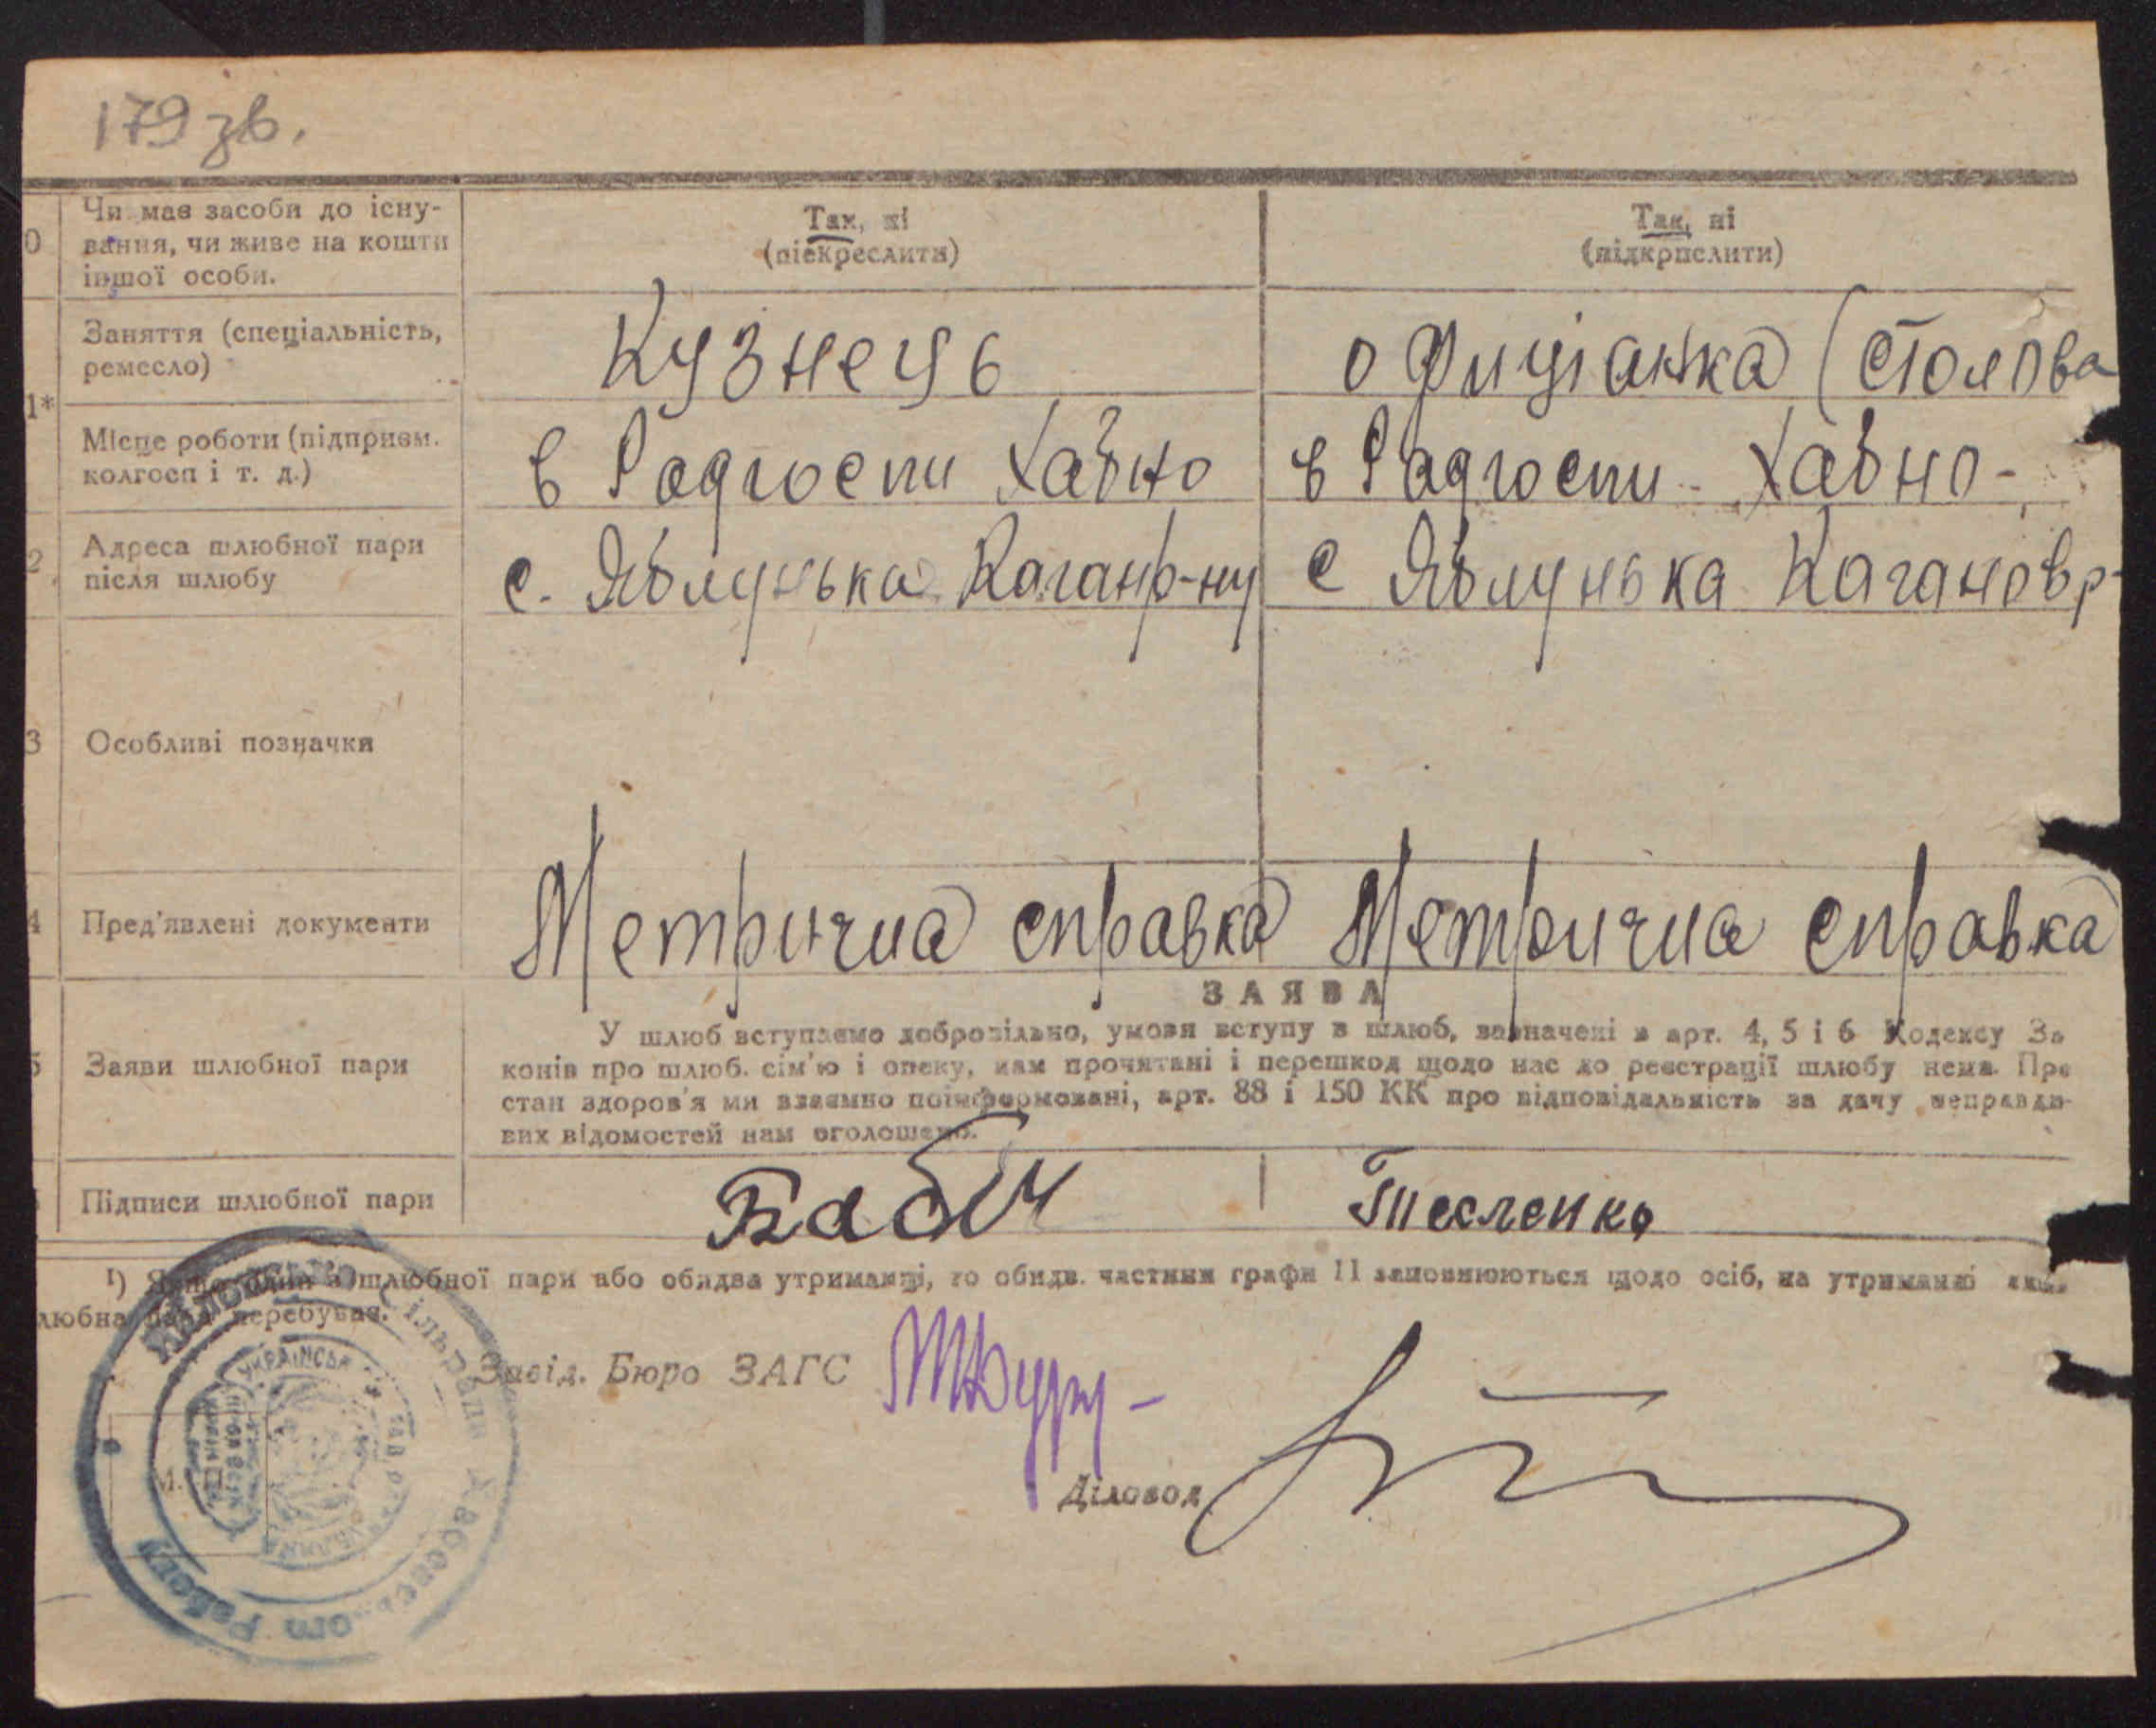 179 зв.
0
Чи має засоби до існу-
вання, чи живе на кошти
іншої особи.
Так, ні
(піекреслити)
Так, ні
(підкрпслити)
Заняття (спеціальність,
ремесло)
Кузнець
офиціанка (столова
1*
Місце роботи (підприєм.
колгосп і т. д.)
в Радгоспи Хабно
в Радгоспи - Хабно -
2
Адреса шлюбної пари
після шлюбу
с. Яблунька Каганр-ну
с Яблунька Кагановр-
3
Особливі позначки
4
Пред'явлені документи
Метрична справка
Метрична справка
ЗАЯВА
5
Заяви шлюбної пари
У шлюб вступаємо добровільно, умови вступу в шлюб, зазначені в арт. 4, 5 і 6 Кодексу За
конів про шлюб. сім'ю і опеку, нам прочитані і перешкод щодо нас до реєстрації шлюбу нема. Про
стан здоров'я ми взаємно поінформовані, арт. 88 і 150 КК про відповідальність за дачу неправди-
вих відомостей нам оголошено.
Підписи шлюбної пари
Бабич
Тесленко
1) Якщо один з шлюбної пари або обидва утриманці, то обидв. частини графи 11 заповнюються щодо осіб, на утриманні яких
любна пара перебуває.
Завід. Бюро ЗАГС
УКРАЇНСЬКА
М.
Діловод
сільради Хабенського Району